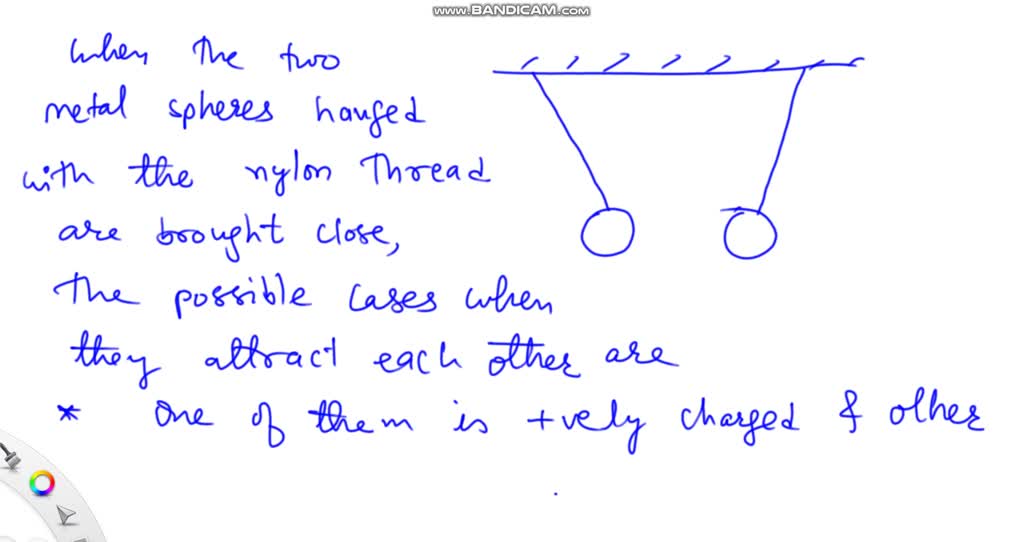 www.BANDICAM.com
when the two
metal spheres hanged
with the nylon Thread
are brought close,
The possible cases when
they attract each other are
* One of them is +vely charged & other